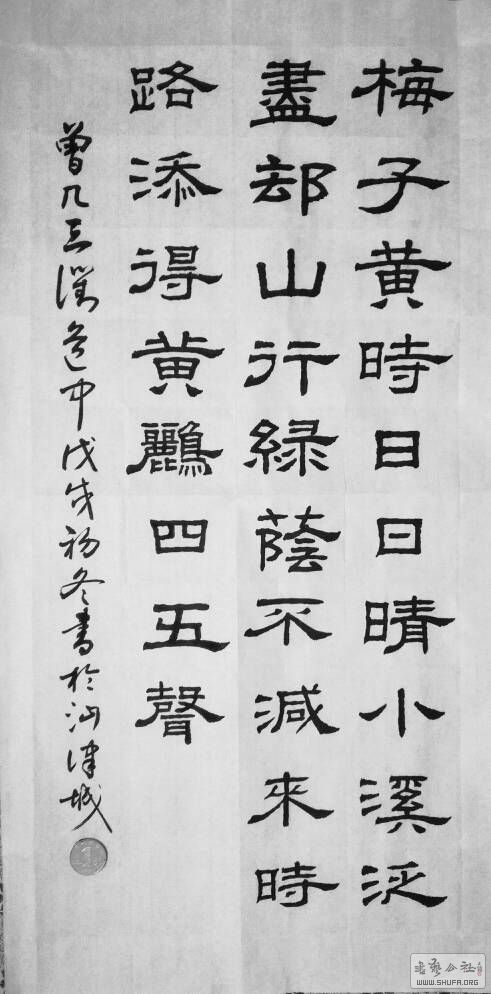 梅子黄時日日晴小溪泛
盡却山行緑蔭不減來時
路添得黄鸝四五聲
曾几三衢道中戊戌初冬書於汕津城
WWW.SHUFA.ORG